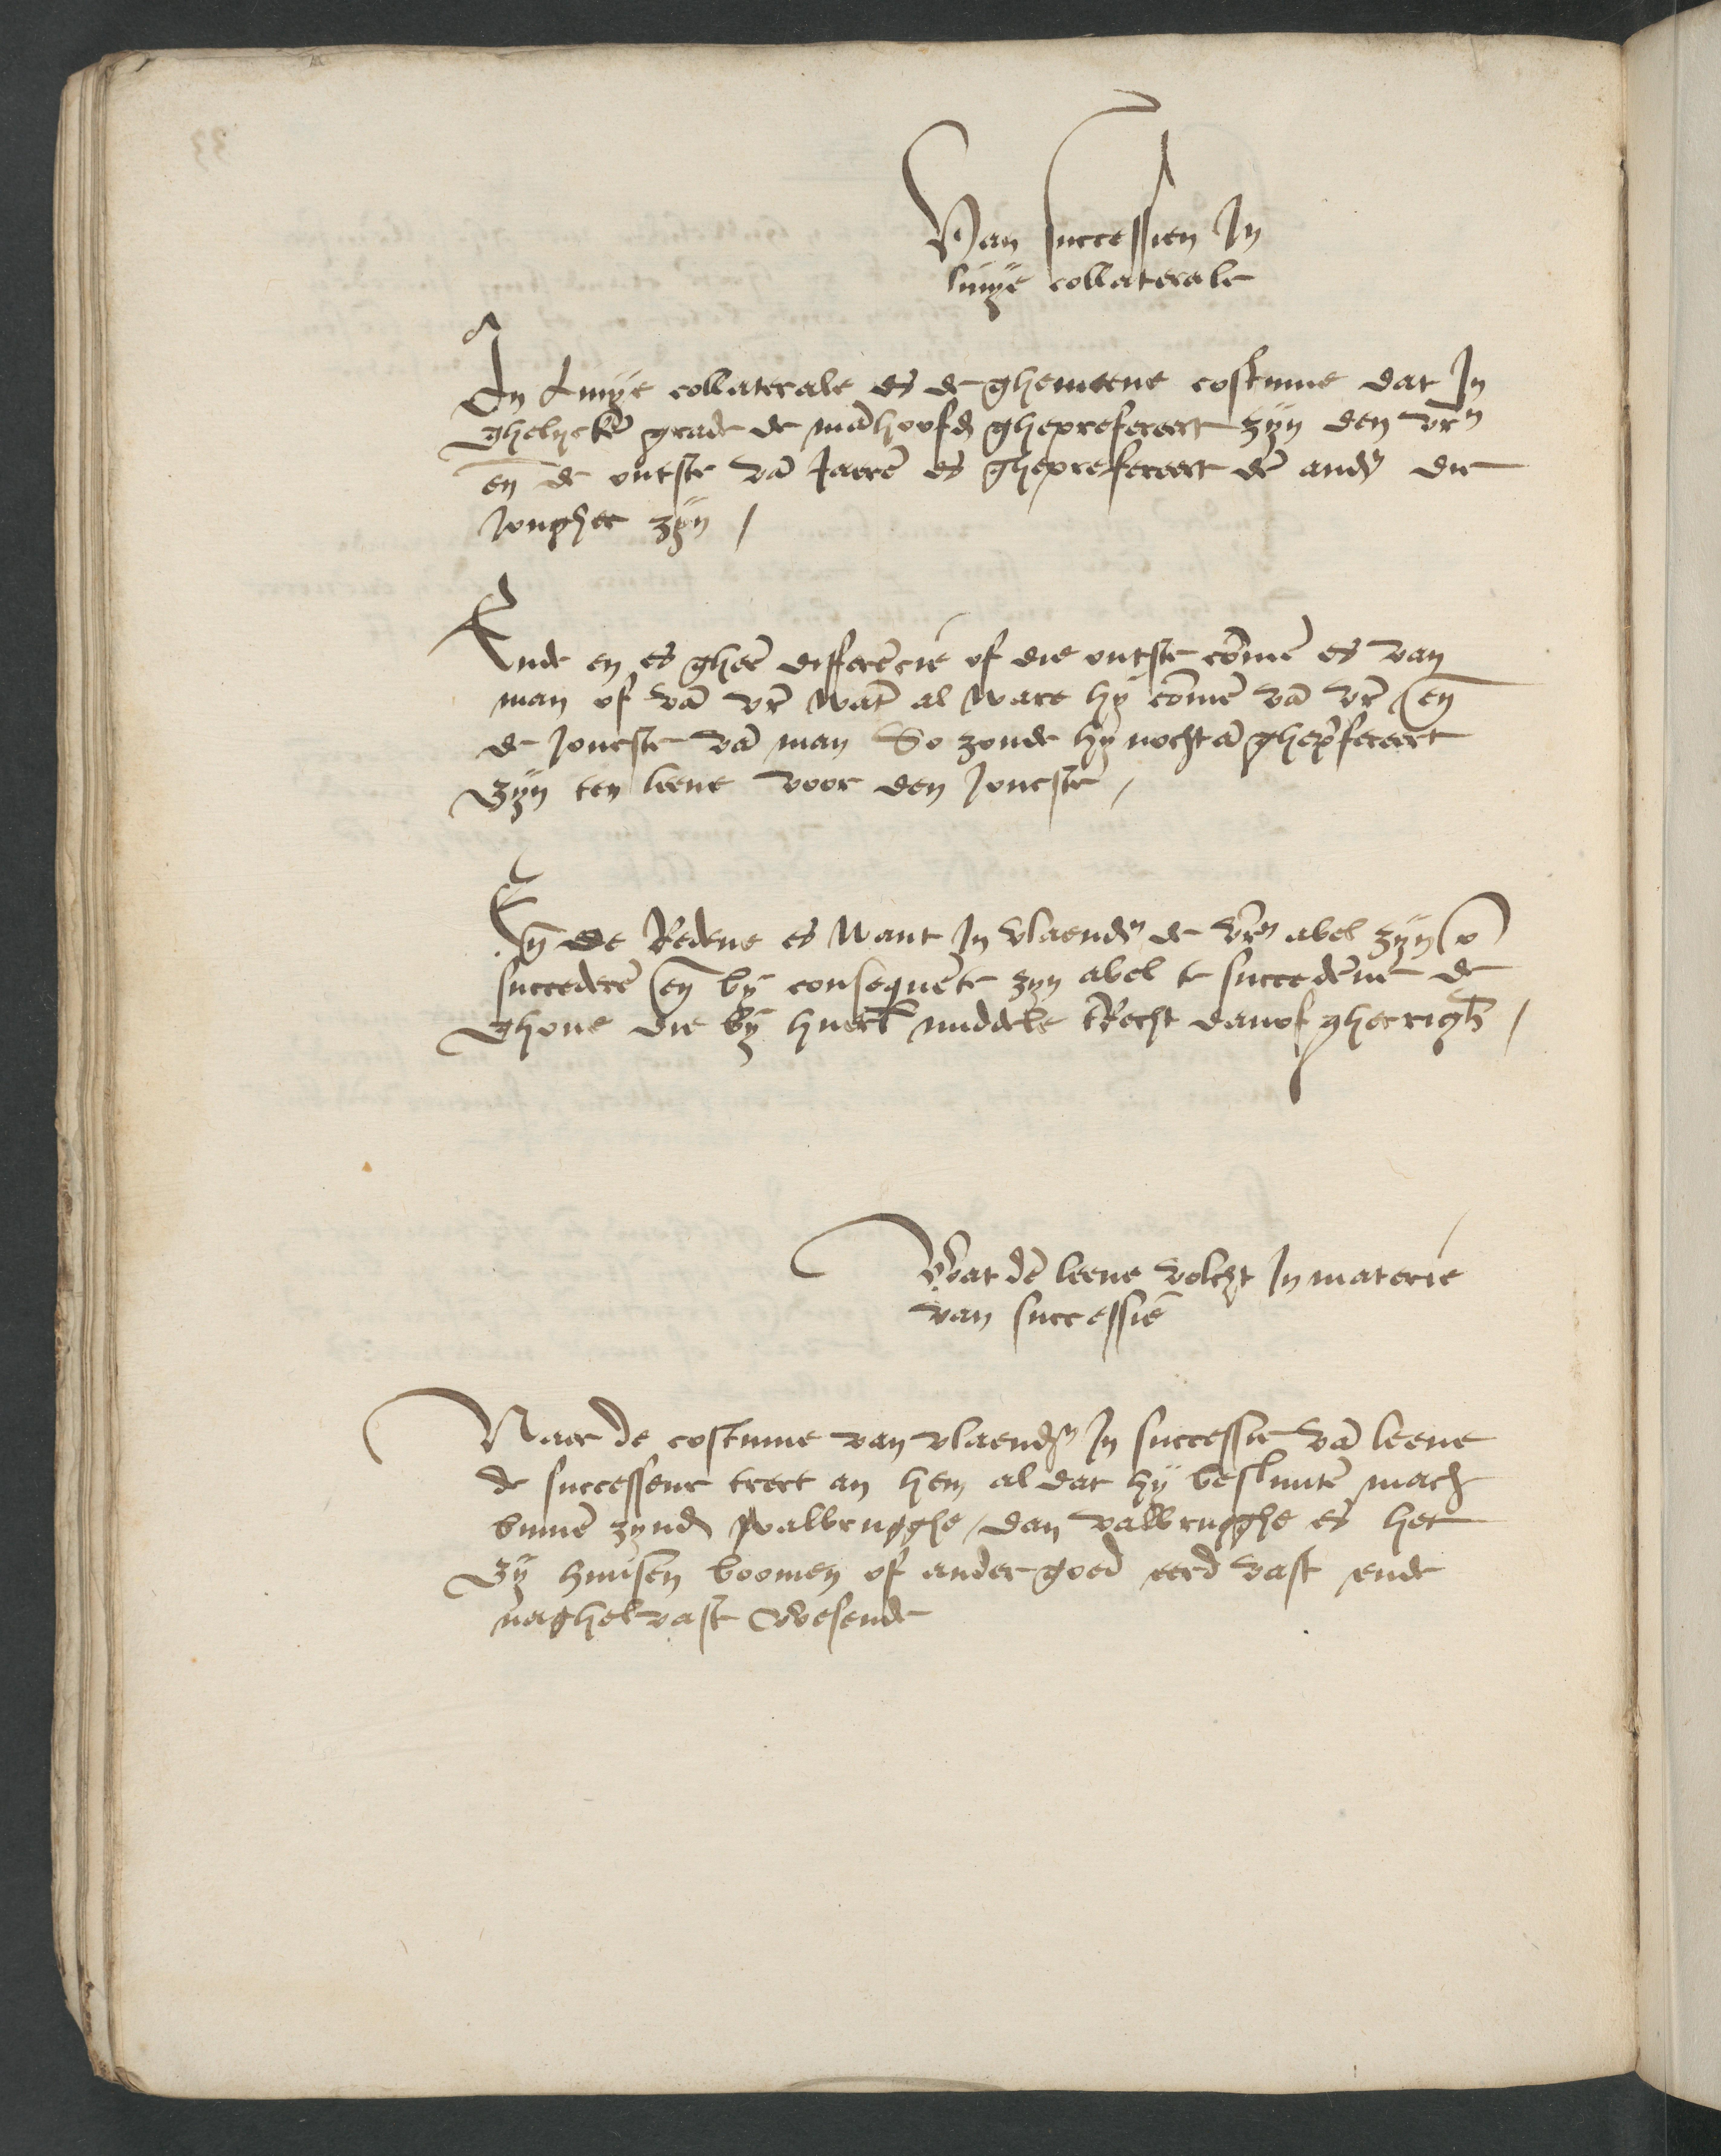 Van successien In
linye collaterale
In Linye collaterale es de ghemeene costume dat In
ghelycke͞ grade de ma͞hoofd͞ gheprefereert zyn den vr͞n
en͞ de outste va͞ Jaere͞ es gheprefereert de͞ and͞ die
Jongher zyn /
Ende en es ghee͞ differe͞cie of die outste co͞me͞ es van
man of va͞ vr͞ wa͞t al ware hy co͞me͞ va͞ vr͞ en͞
de Joncste va͞ man So zoude hy nochta͞ ghep͞fereert
zyn ten leene voor den Joncste͞ /
En͞ de Redene es want In vlaend͞ de vr͞n abel zyn o͞
succedere͞ en͞ by conseque͞te zyn abel te succede͞ne͞ de
ghone die by huerl͞ middele t͞Recht danof ghecrigh͞ /
Wat de͞ leene volcht In materie
van successie͞
Naer de costume van vlaend͞ In successie va͞ leene
de successeur trect an hem al dat hy besluute͞ mach
binne͞ zynd͞ valbrugghe / dan valbrugghe es het
zy huusen boomen of ander goed eerd vast ende
naghel vast wesende
33